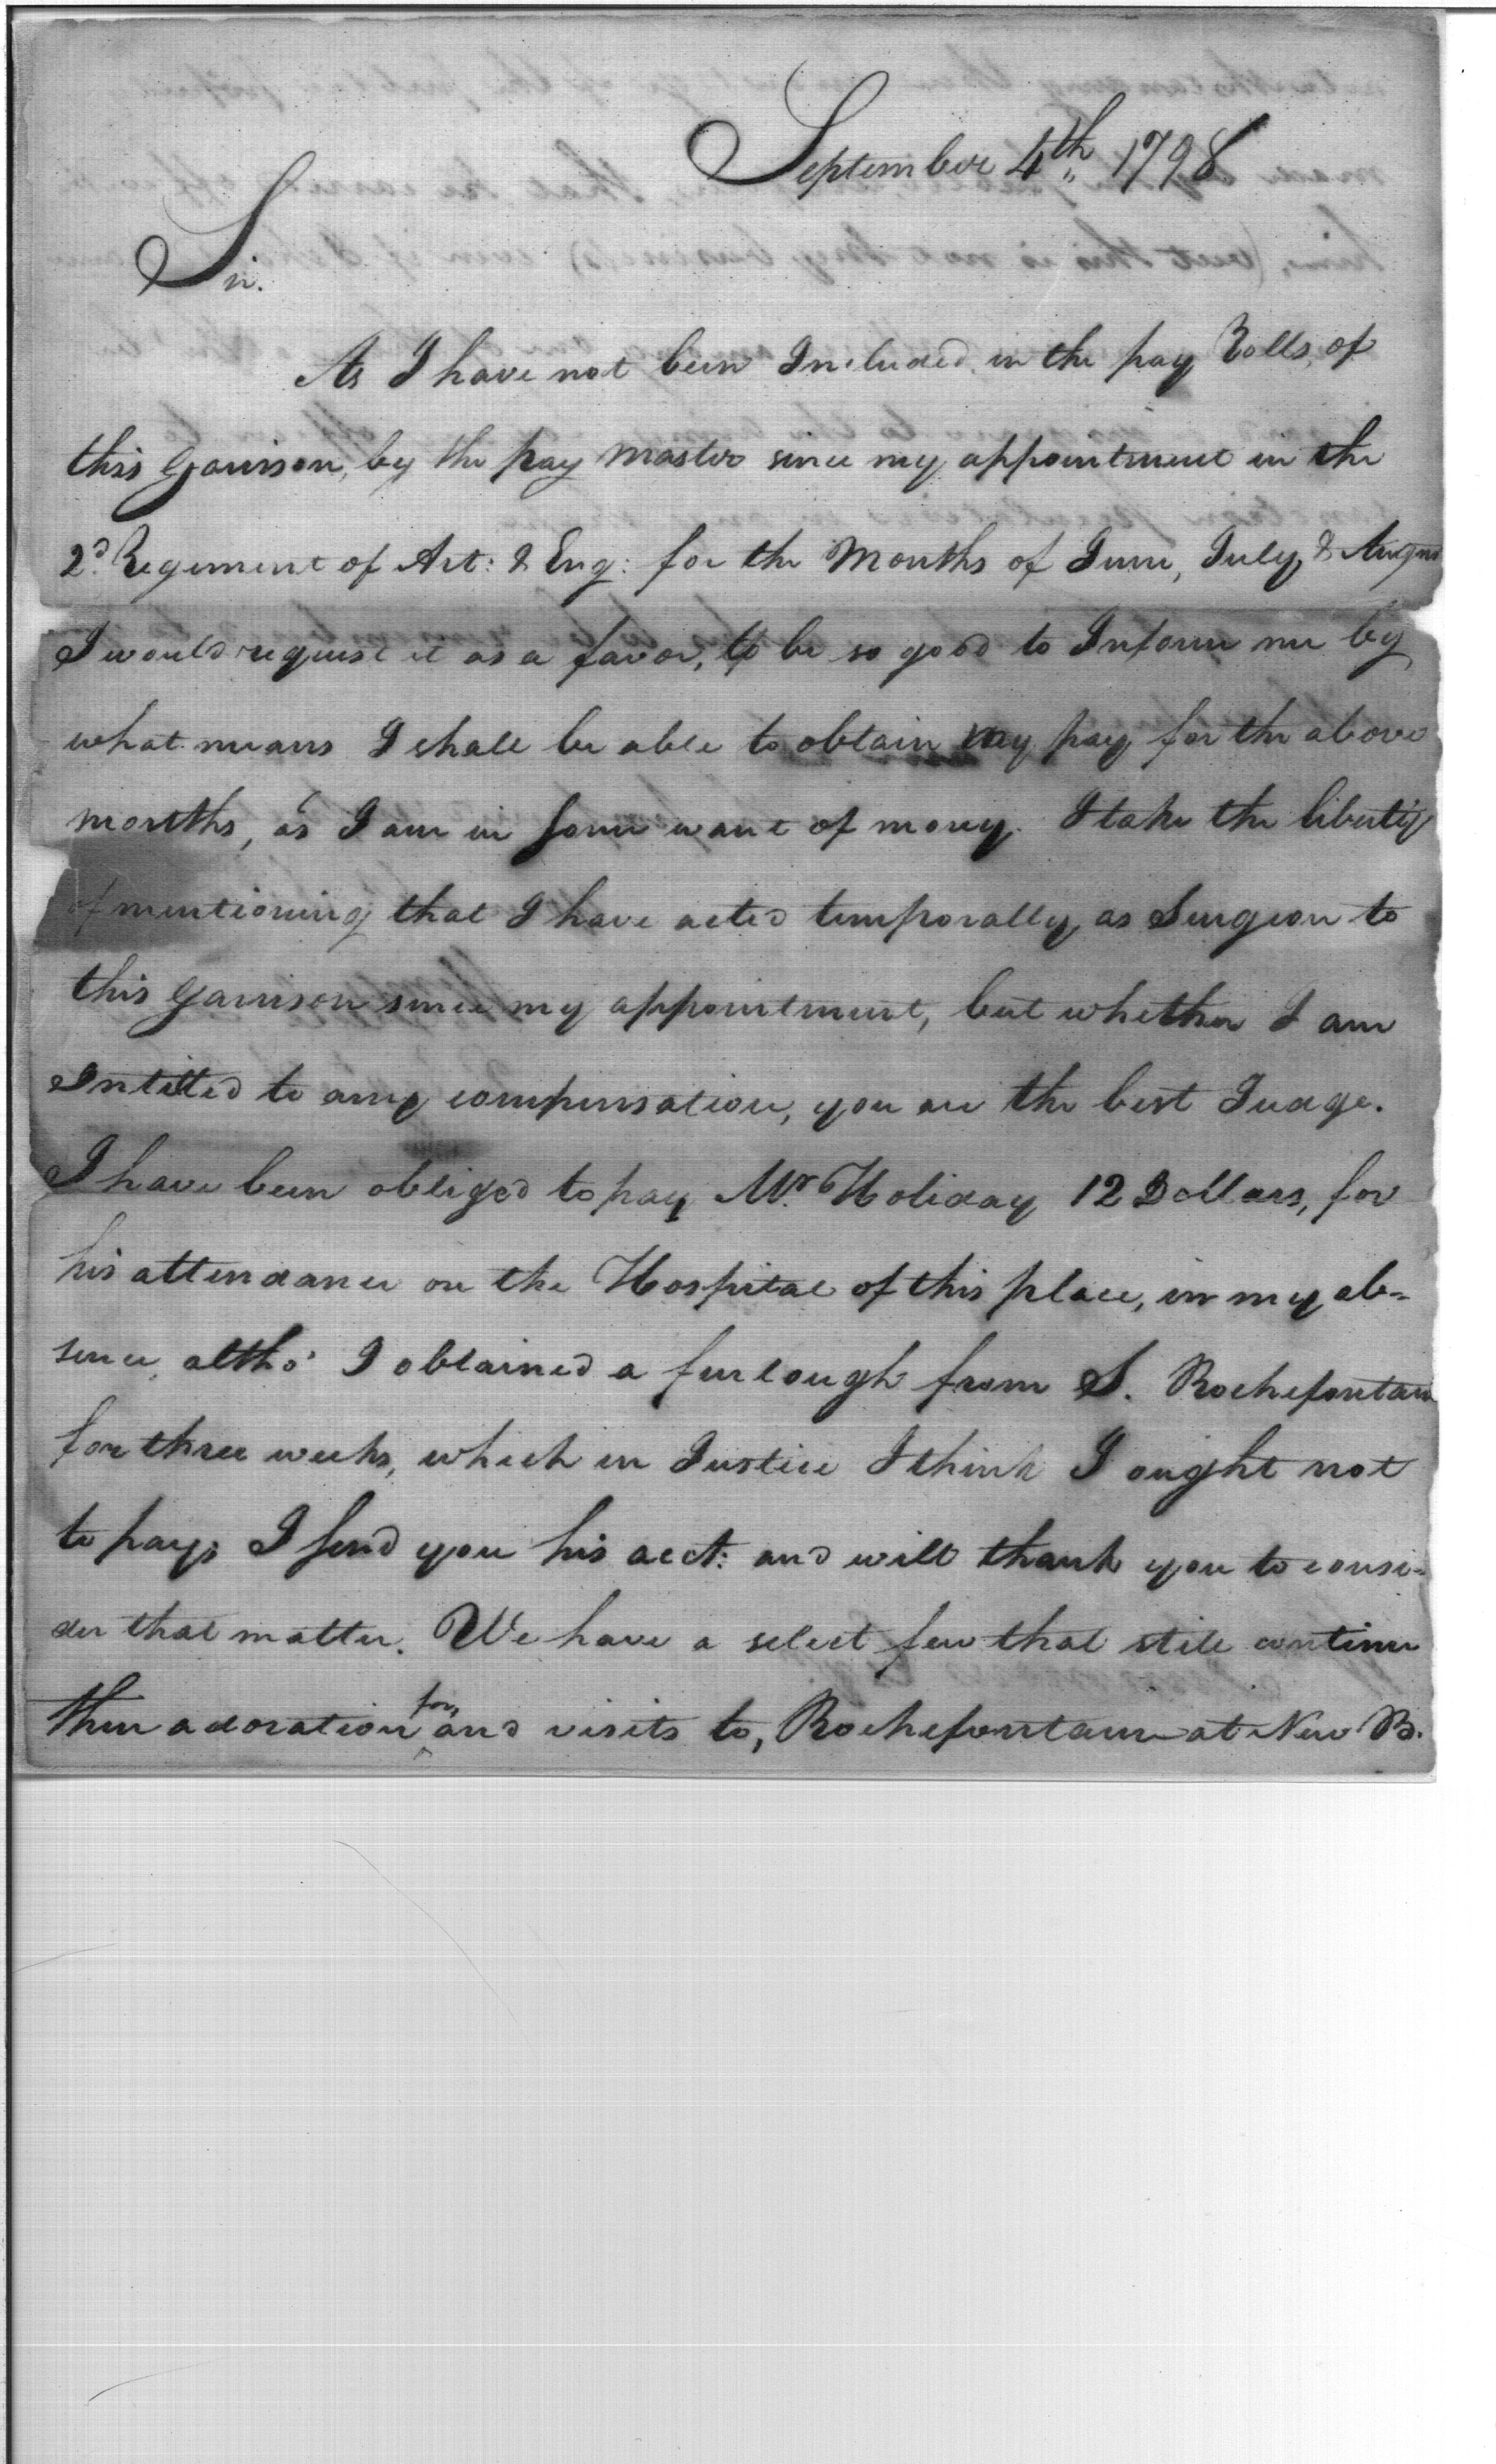 September 4th 1798
Sir.
As I have not been Included in the pay Rolls of
this Garrison, by the pay Master since my appointment in the
2d. Regement of Art: & Eng: for the Months of June, July, & August
I would request it as a favor, to be so good to Inform me by
what means I shall be able to obtain my pay for the above
months, as I am in some want of mony. I take the liberty
of mentioning that I have acted temporally as Surgeon to
this Garrison since my appointment, but whether I am
Intitled to any compensation, you are the best Judge.
I have been obliged to pay Mr. Holiday 12 Dollars, for
his attendance on the Hospital of this place, in my ab=
sence, altho' I obtained a furlough from S. Rochefontain
for three weeks, which in Justice I think I ought not
to pay; I send you his acct: and will thank you to consi=
der that matter. We have a select few that still continue
their adoration for, and visits to, Rochefontain at New B.